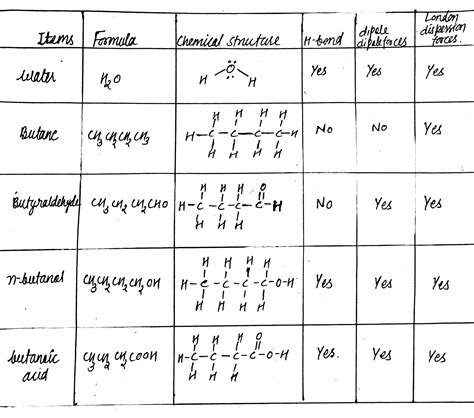 Items | Formula | Chemical structure | H-bond | dipole dipole forces | London dispersion forces.
Water | H₂O | H-O-H | Yes | Yes | Yes
Butane | CH₃ CH₂ CH₂ CH₃ | H H H H
H-C-C-C-C-H
H H H H | No | No | Yes
Butyraldehyde | CH₃ CH₂ CH₂ CHO | H H H O
H-C-C-C-C-H
H H H | No | Yes | Yes
n-butanol | CH₃ CH₂ CH₂ CH₂ OH | H H H H
H-C-C-C-C-O-H
H H H H | Yes | Yes | Yes
butanoic acid | CH₃ CH₂ CH₂ COOH | H H H O
H-C-C-C-C-O-H
H H H | Yes. | Yes | Yes